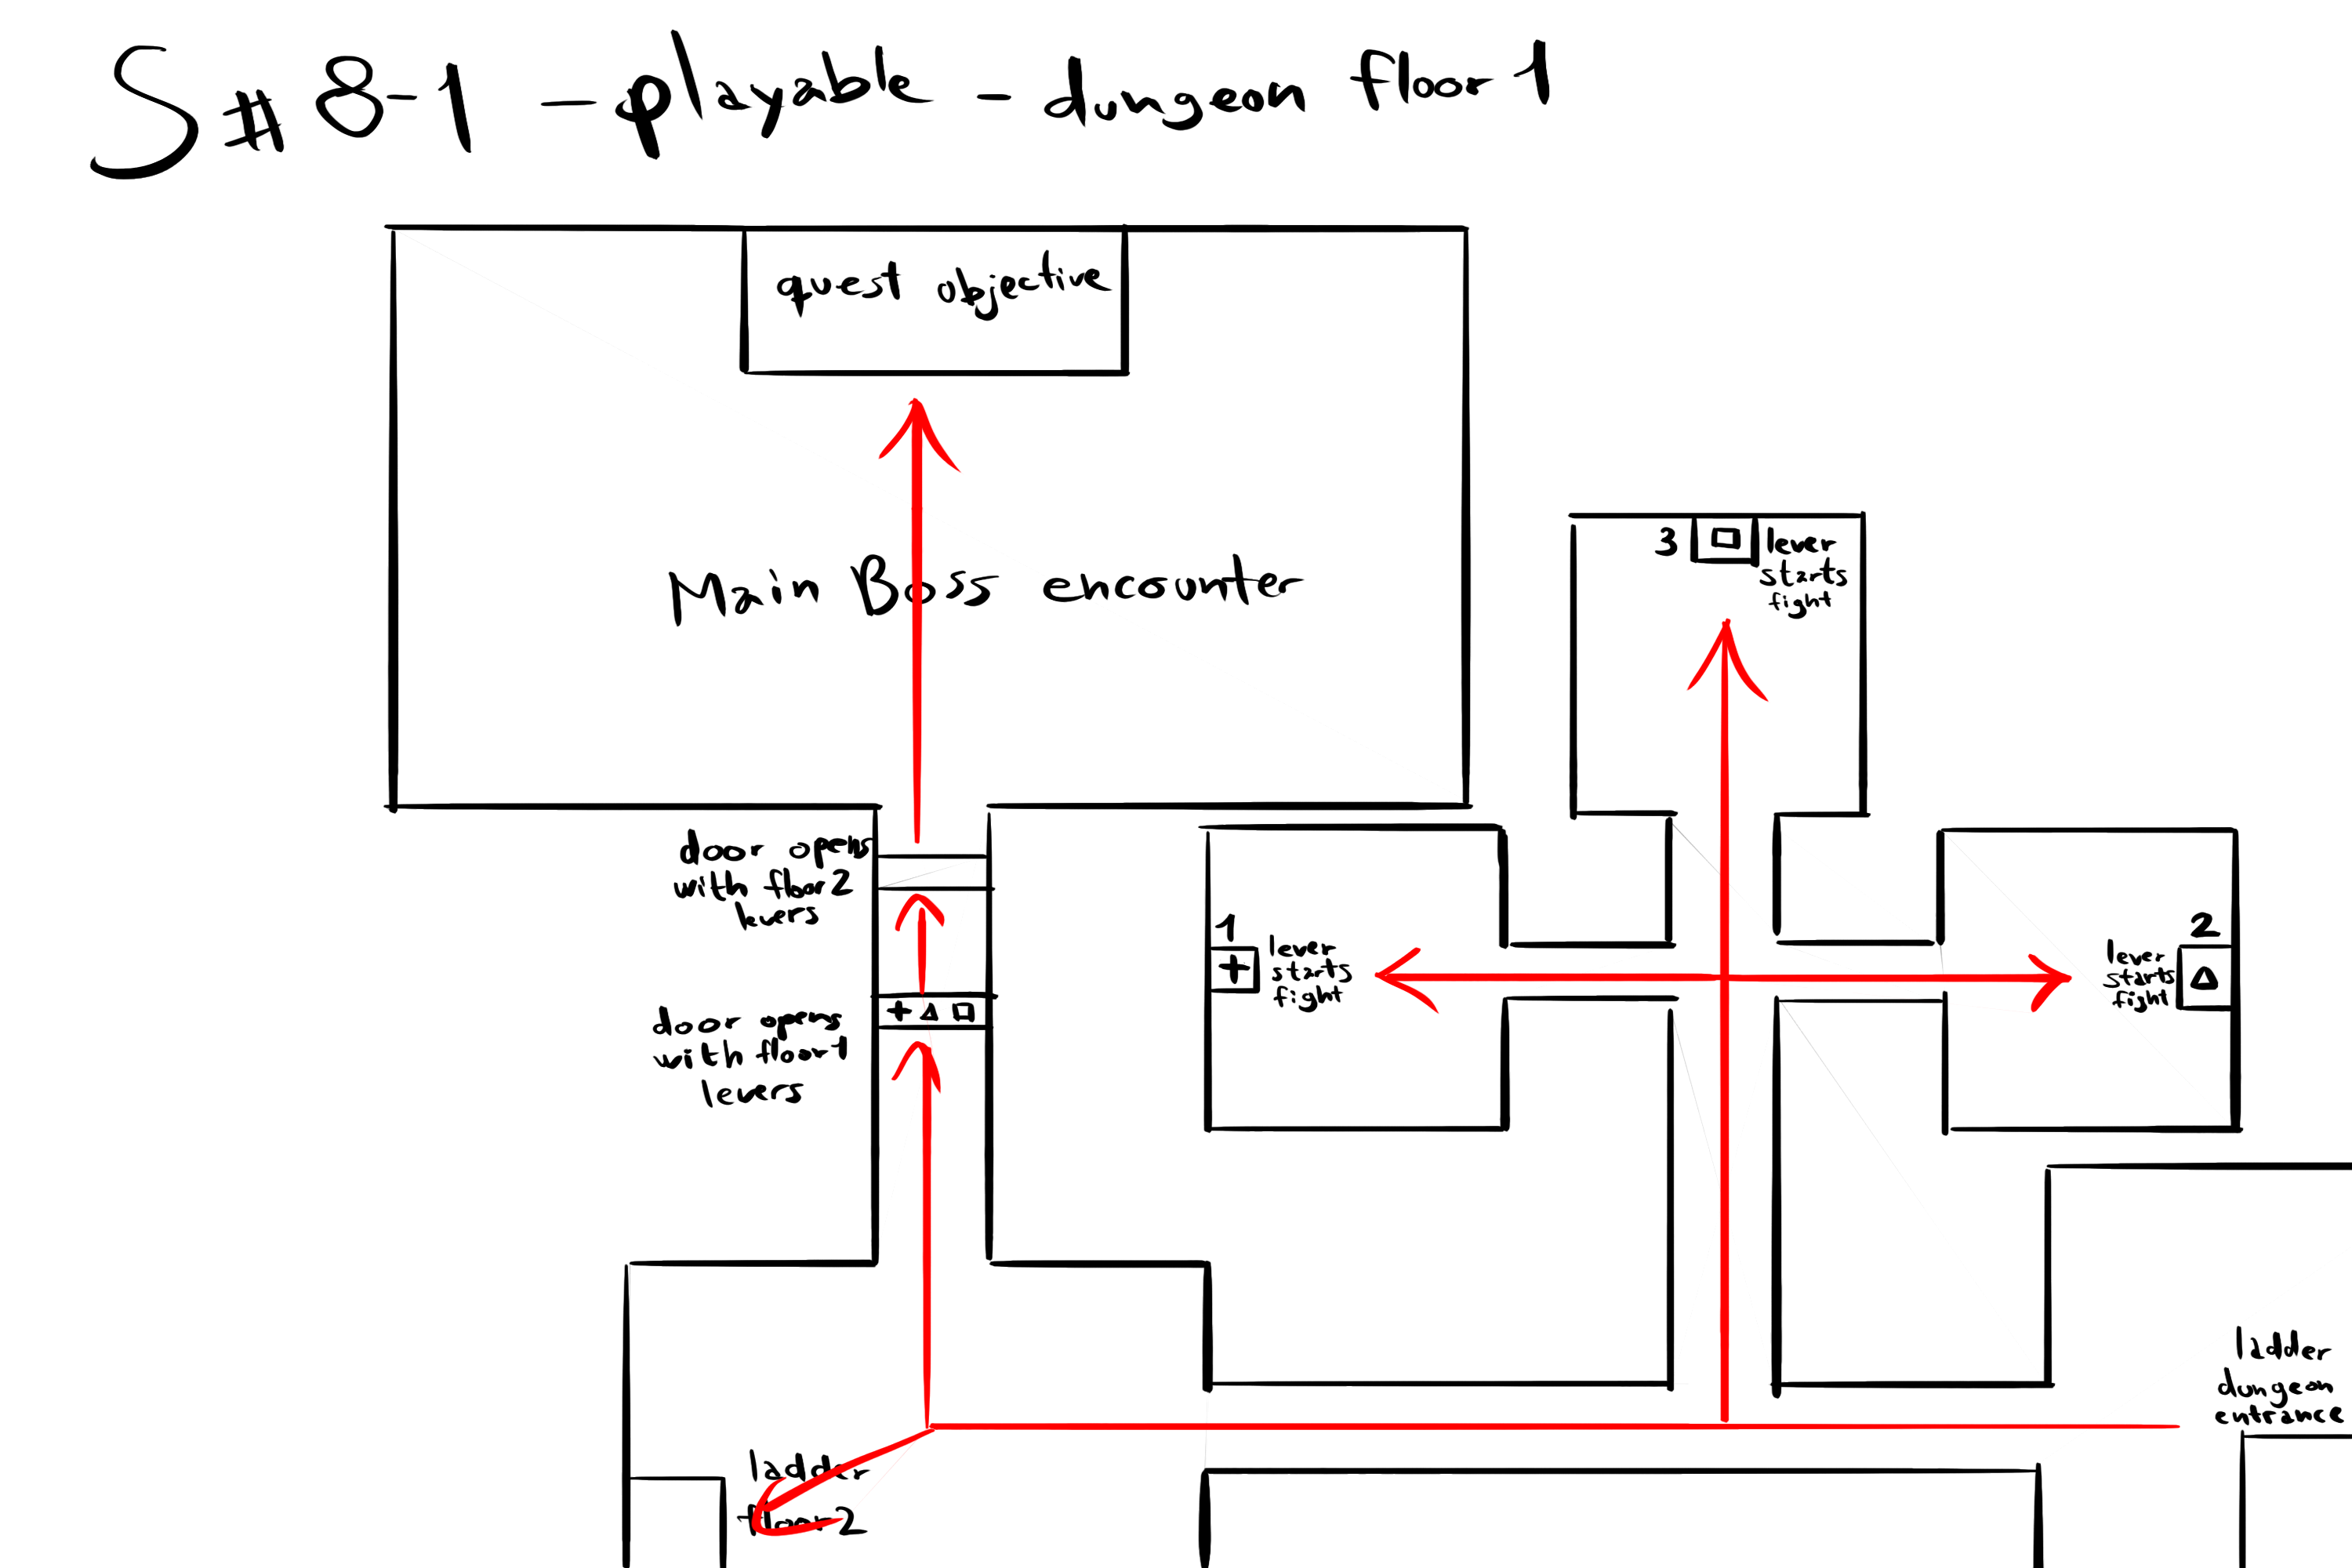 S # 8-1 - playable - dungeon floor 1
quest objective
Main Boss encounter
3
lever
starts
fight
door opens
with floor 2
levers
1
+
lever
starts
fight
2
lever
starts
fight
+ △ □
door opens
with floor 1
levers
ladder
dungeon
entrance
ladder
floor 2